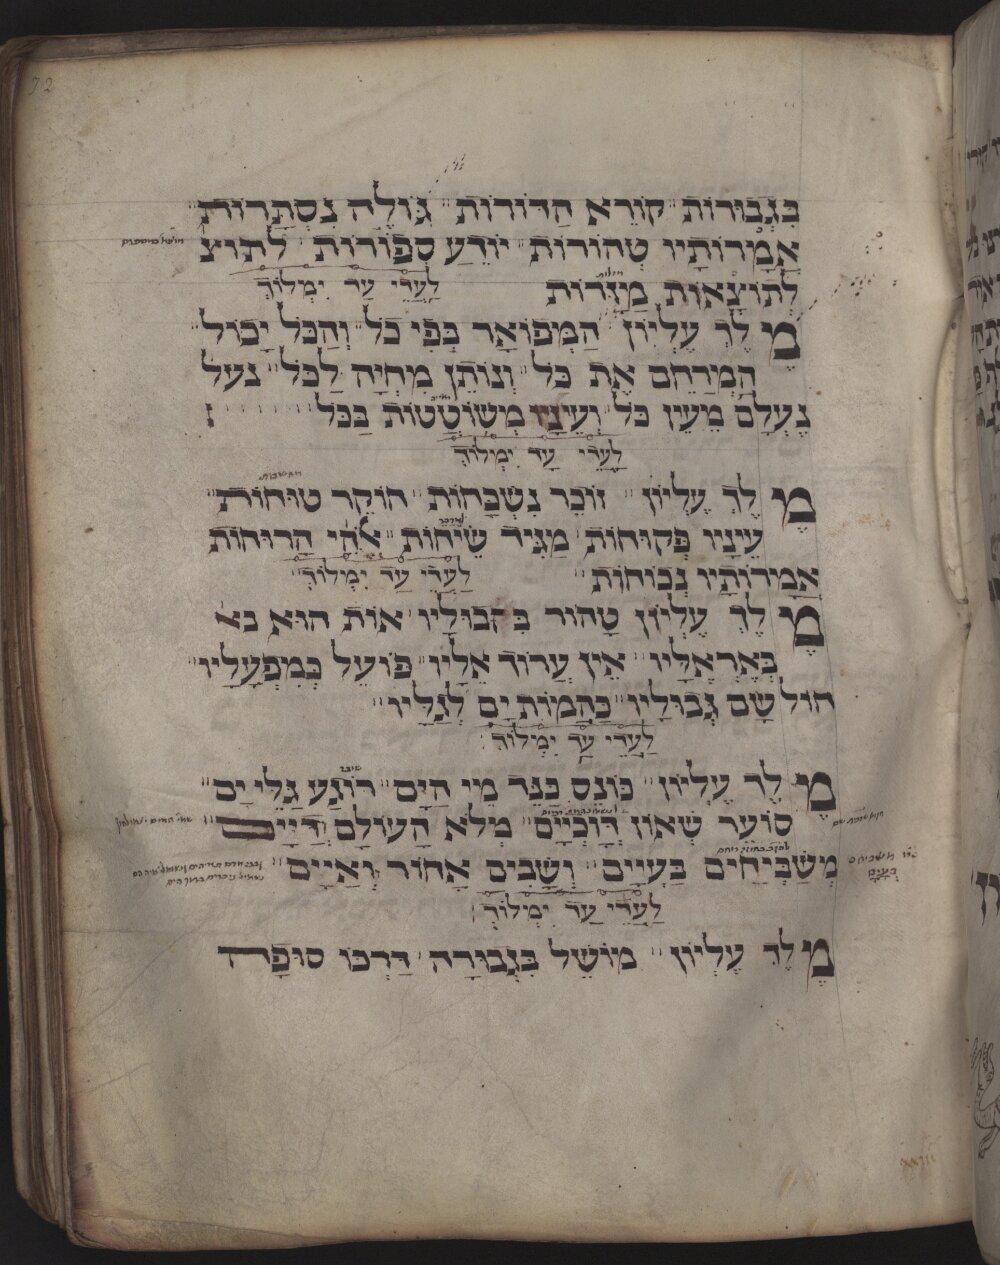 בִּגְבוּרוֹת קוֹרֵא הַדּוֹרוֹת גּוֹלֶה נִסְתָּרוֹת
אִמְרוֹתָיו טְהוֹרוֹת יוֹדֵעַ סְפוֹרוֹת לתוצ
לְתוֹצְאוֹת מַזָּרוֹת לַעֲדֵי עַד יִמְלוֹךְ
מֶלֶךְ עֶלְיוֹן הַמְפוֹאָר בְּפִי כֹל וְהַכֹּל יָכוֹל
הַמְרַחֵם אֶת כֹּל וְנוֹתֵן מִחְיָה לַכֹּל נעל
נֶעְלָם מֵעֵין כֹּל וְעֵינָיו מְשׁוֹטְטוֹת בַּכֹּל
לַעֲדֵי עַד יִמְלוֹךְ
מֶלֶךְ עֶלְיוֹן זוֹכֵר נִשְׁכָּחוֹת חוֹקֵר טוּחוֹת
עֵינָיו פְּקוּחוֹת מַגִּיד שֵׂיחוֹת אֱלֹהֵי הָרוּחוֹת
אִמְרוֹתָיו נְכוֹחוֹת לַעֲדֵי עַד יִמְלוֹךְ
מֶלֶךְ עֶלְיוֹן טָהוֹר בִּזְבוּלָיו אוֹת הוּא בא
בְּאֶרְאֶלָּיו אֵין עֲרוֹךְ אֵלָיו פּוֹעֵל כְּמִפְעָלָיו
חוֹל שָׂם גְּבוּלָיו כַּהֲמוֹת יָם לְגַלָּיו
לַעֲדֵי עַד יִמְלוֹךְ
מֶלֶךְ עֶלְיוֹן כּוֹנֵס כַּנֵּד מֵי הַיָּם רוֹגַע גַּלֵּי יָם
סוֹעֵר שְׁאוֹן דָּכְיָים מְלֹא הָעוֹלָם דַּיָּים
מְשַׁבְּיחִים בַּעְיָים וְשָׁבִים אָחוֹר וְאַיָּים
לַעֲדֵי עַד יִמְלוֹךְ
מֶלֶךְ עֶלְיוֹן מוֹשֵׁל בִּגְבוּרָה דַּרְכּוֹ סוּפָה